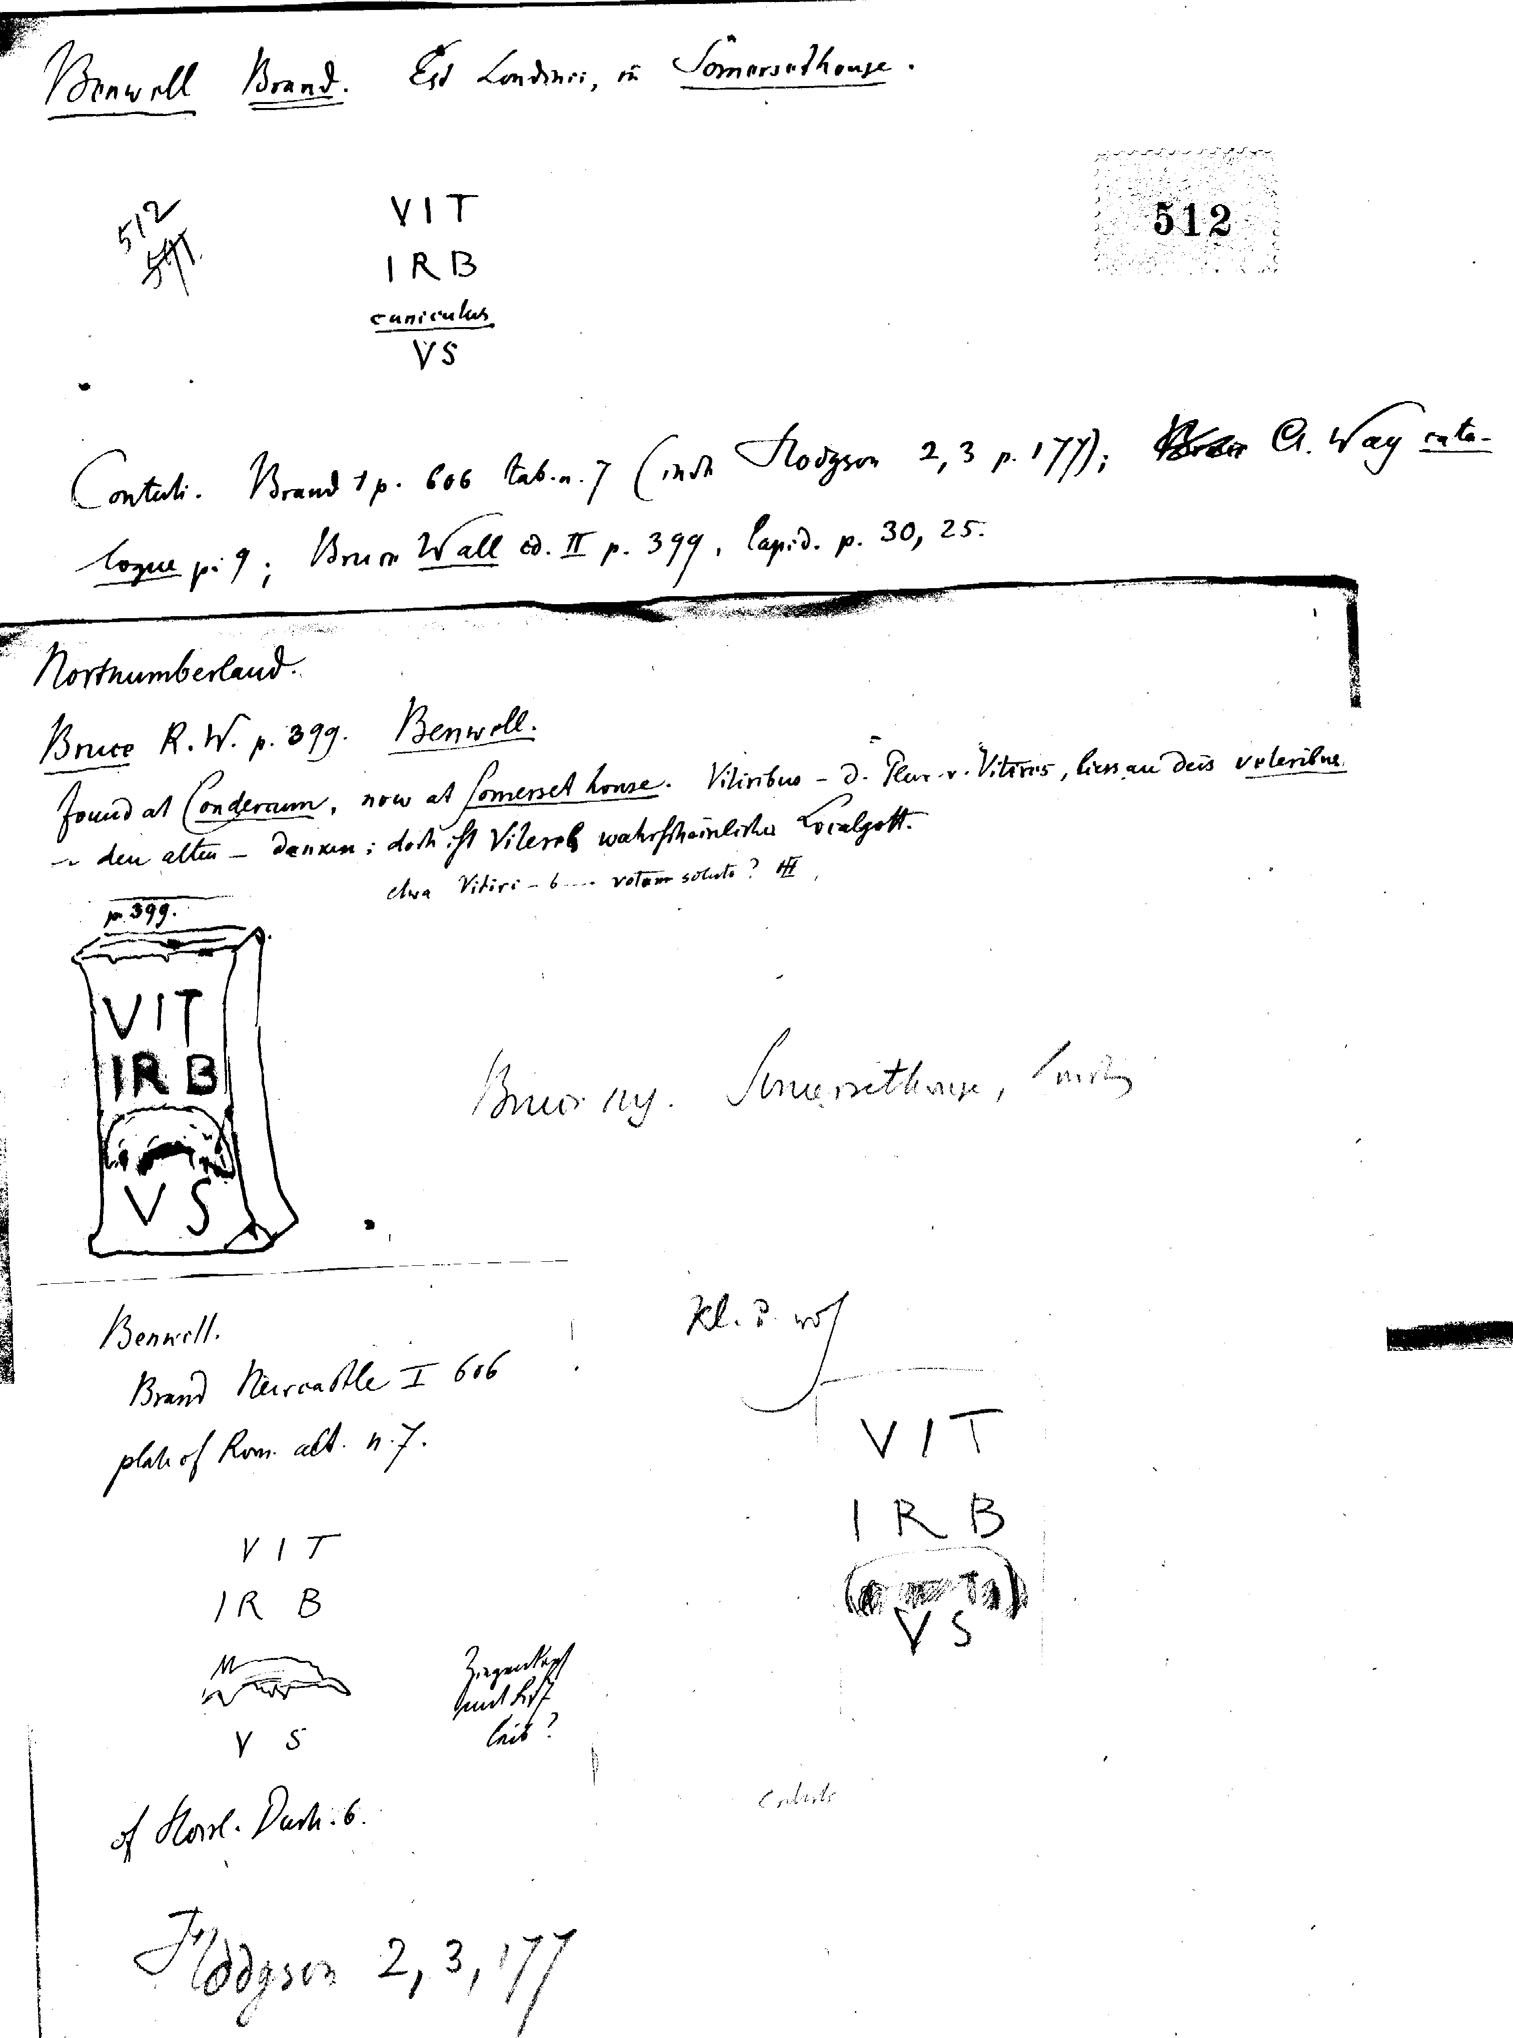 Benwell Brand. Est Londinii, in Somersethouse.
512
512
VIT
IRB
cuniculus
VS
Contuli. Brand 1 p. 606 tab. n. 7 (inde Hodgson 2, 3 p. 177); A. Way cata-
logue p. 9; Bruce Wall ed. II p. 399, lapid. p. 30, 25.
Northumberland.
Bruce R. W. p. 399. Benwell.
found at Condercum, now at Somerset house. Vitiribus - d. Plur. v. Vitires, liess an deis veteribus
den alten - denken; doch ist Viteres wahrscheinlicher Localgott.
etwa Vitiri - b .... votum solvit?
p. 399.
VIT
IRB
VS
Bruce Somersethouse,
Benwell.
Brand Newcastle I 606
plate of Rom. alt. n. 7.
VIT
IRB
VS
Kl.
VIT
IRB
VS
Ziegenkopf
und
leib?
cf Horsl. Durh. 6.
Hodgson 2, 3, 177